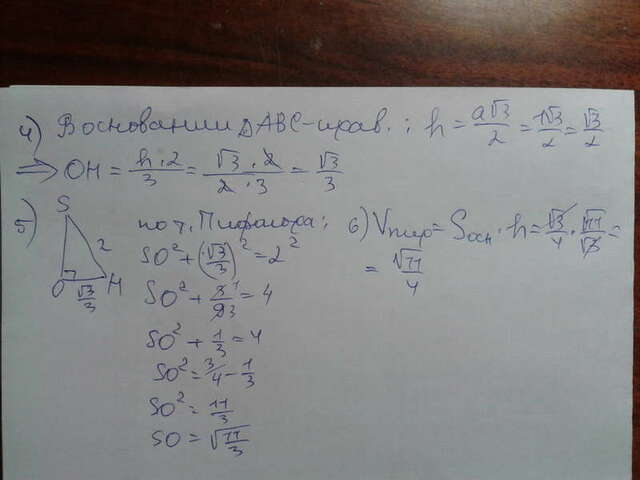 4) В основании ΔАВС-прав.; h = a√3/2 = 1√3/2 = √3/2
⇒ OH = h·2/3 = √3·2/2·3 = √3/3
5) S
2
O √3/3 H
по т. Пифагора:
SO² + (√3/3)² = 2²
SO² + 3¹/9₃ = 4
SO² + 1/3 = 4
SO² = 3/4 - 1/3
SO² = 11/3
SO = √11/3
6) Vпир = Sосн · h = √3/4 · √11/√3 =
= √11/4